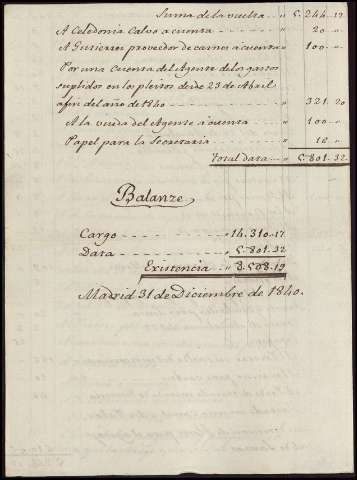 Suma de la vuelta - - " 5.244..12
A Celedonia Calvo a cuenta - - - - - " 20 - "
A Gutierrez proveedor de carnes a cuenta " 100 - "
Por una cuenta del Agente de los gastos
suplidos en los pleitos desde 23 de Abril
a fin del año de 1840 - - - - - " 321..20
A la viuda del Agente a cuenta - - - " 100 - "
Papel para la Secretaria - - - - - " 16 - "
Total data - - " 5.801..32
Balanze
Cargo - - - - - - - - - " 14.310..17
Data - - - - - - - - - " 5.801..32
Existencia - - " 8.508..19
Madrid 31 de Diciembre de 1840.